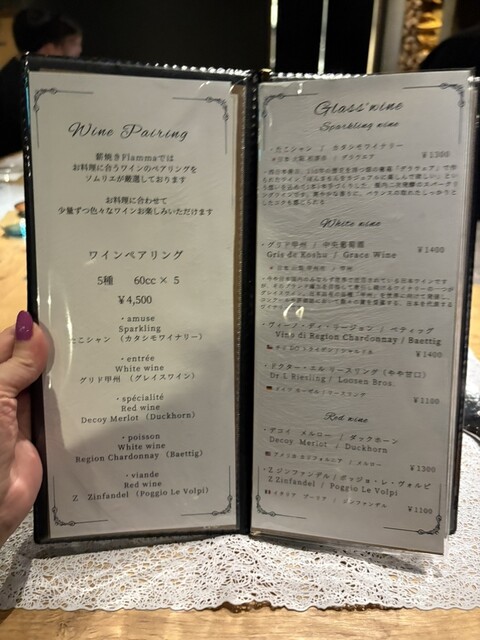 Wine Pairing
薪焼きFlammaでは
お料理に合うワインのペアリングを
ソムリエが厳選しております
お料理に合わせて
少量ずつ色々なワインお楽しみいただけます
ワインペアリング
5種 60cc × 5
¥4,500
・amuse
Sparkling
たこシャン (カタシモワイナリー)
・entrée
White wine
グリド甲州 (グレイスワイン)
・spécialité
Red wine
Decoy Merlot (Duckhorn)
・poisson
White wine
Region Chardonnay (Baettig)
・viande
Red wine
Z Zinfandel (Poggio Le Volpi)
Glass wine
Sparkling wine
・たこシャン / カタシモワイナリー
日本 大阪 柏原市 / デラウェア
¥1300
White wine
・グリド甲州 / 中央葡萄酒
Gris de Koshu / Grace Wine
¥1400
日本 山梨 甲州市 / 甲州
・ヴィーノ・ディ・リージョン / ベティッグ
Vino di Region Chardonnay / Baettig
¥1400
・ドクター・エル リースリング (やや甘口)
Dr.L Riesling / Loosen Bros.
¥1100
ドイツ モーゼル / リースリング
Red wine
・デコイ メルロー / ダックホーン
Decoy Merlot / Duckhorn
¥1300
アメリカ カリフォルニア / メルロー
・Z ジンファンデル / ポッジョ・レ・ヴォルピ
Z Zinfandel / Poggio Le Volpi
¥1100
イタリア プーリア / ジンファンデル